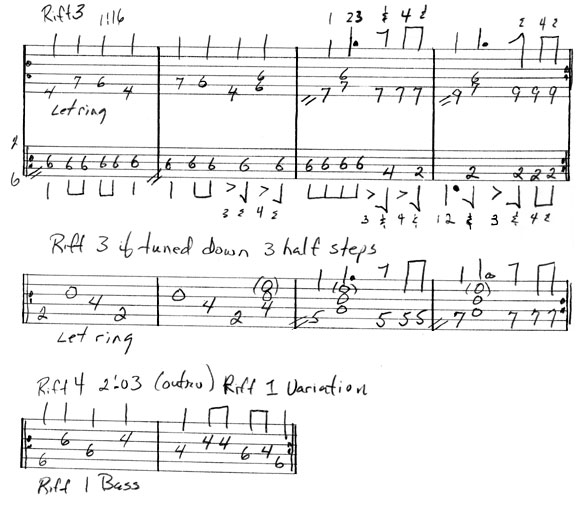 Riff 3 1:16
1 23 & 4 & & 4 &
4 7 6 4 7 6 4 6 6 7 6 7 7 7 7 9 6 7 9 9 9
Let ring
6 6 6 6 6 6 6 6 6 6 6 6 6 6 6 4 2 2 2 2 2
6
3 & 4 & 3 & 4 & 1 2 & 3 & 4 &
Riff 3 if tuned down 3 half steps
2 0 4 2 0 4 2 (0) 0 4 5 (0) 0 0 5 5 5 7 (0) 0 0 7 7 7
Let ring
Riff 4 2:03 (outro) Riff 1 Variation
6 6 6 4 4 4 4 6 4 6
Riff 1 Bass